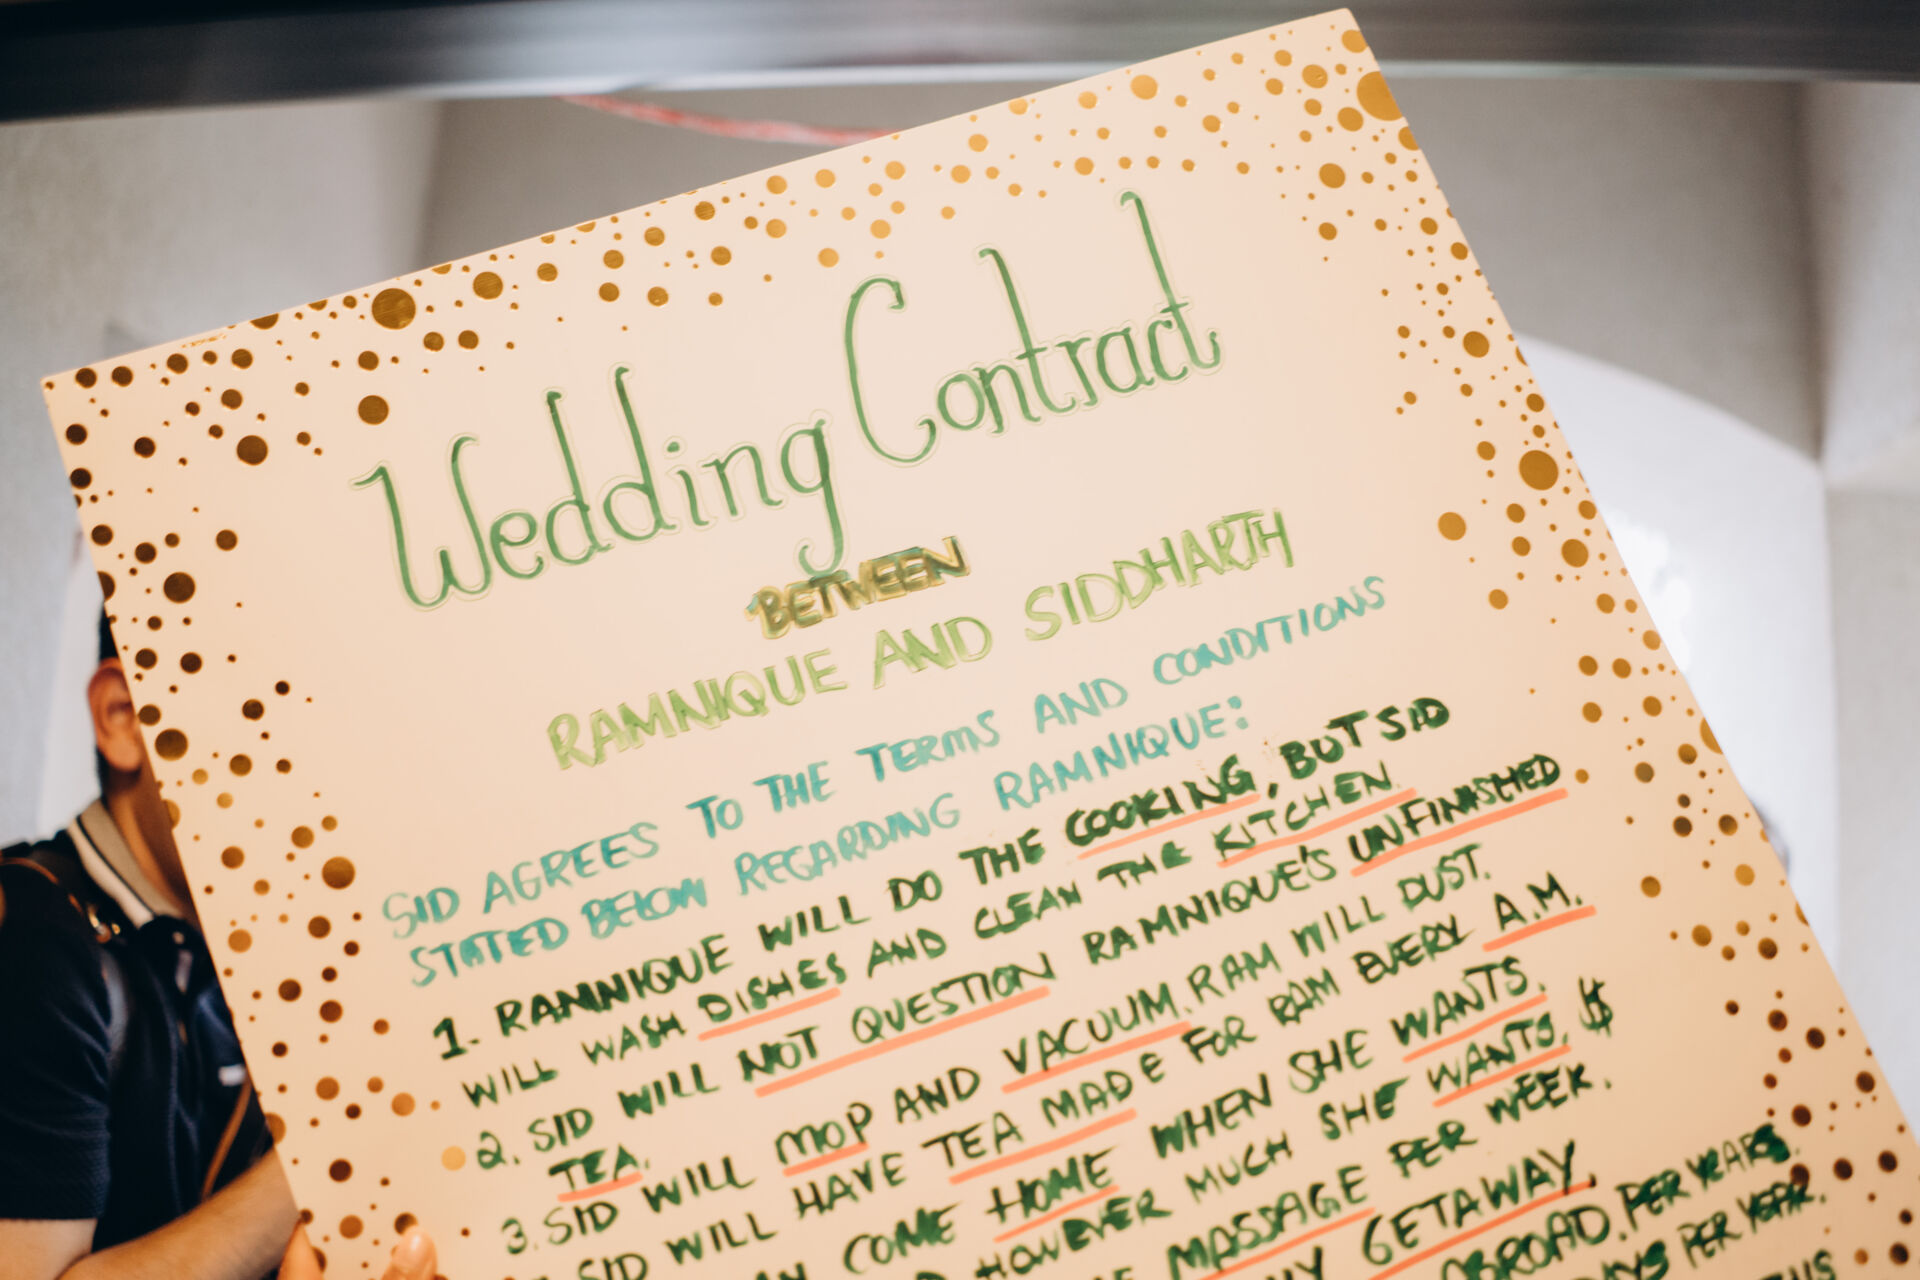 Wedding Contract
BETWEEN
RAMNIQUE AND SIDDHARTH
SID AGREES TO THE TERMS AND CONDITIONS
STATED BELOW REGARDING RAMNIQUE:
1. RAMNIQUE WILL DO THE COOKING, BUT SID
WILL WASH DISHES AND CLEAN THE KITCHEN.
2. SID WILL NOT QUESTION RAMNIQUE'S UNFINISHED
TEA.
3. SID WILL MOP AND VACUUM. RAM WILL DUST.
SID WILL HAVE TEA MADE FOR RAM EVERY A.M.
COME HOME WHEN SHE WANTS.
HOWEVER MUCH SHE WANTS. $
MASSAGE PER WEEK.
GETAWAY.
ABROAD. PER YEARS.
DAYS PER YEAR.